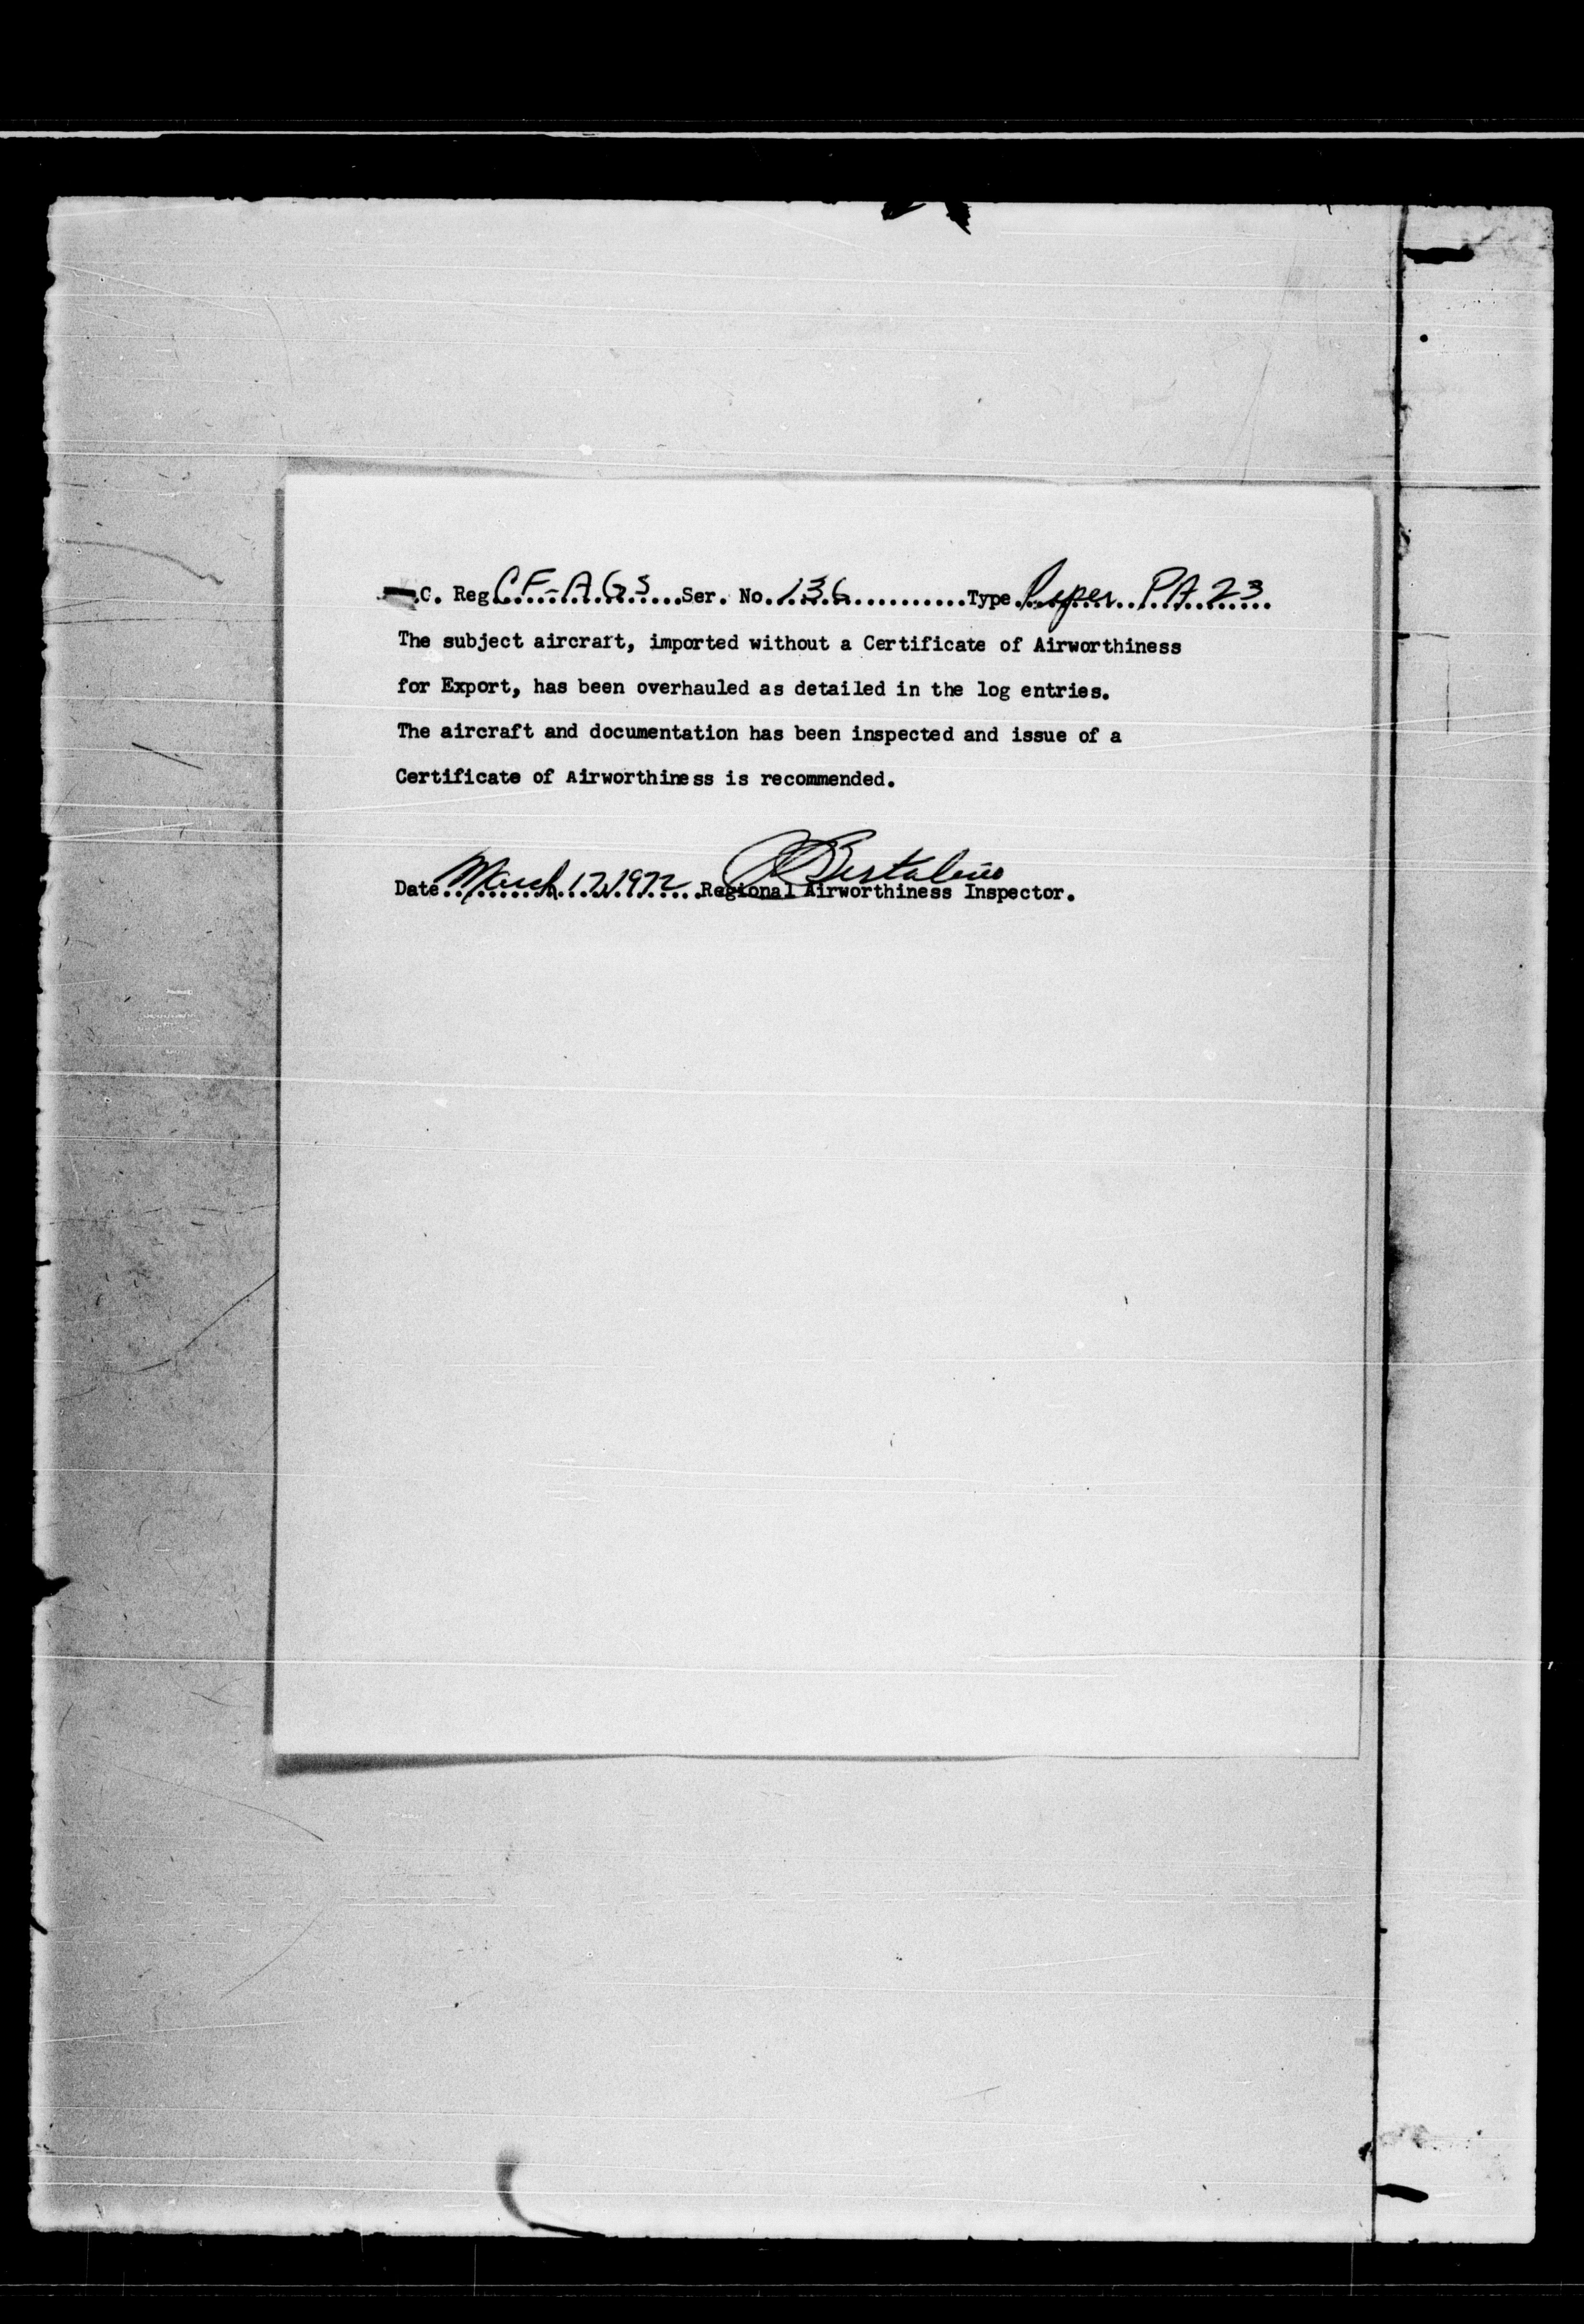 .C. Reg. CF-AGS Ser. No. 136 Type Piper PA 23
The subject aircraft, imported without a Certificate of Airworthiness
for Export, has been overhauled as detailed in the log entries.
The aircraft and documentation has been inspected and issue of a
Certificate of Airworthiness is recommended.
Date March 17, 1972 Regional Airworthiness Inspector.